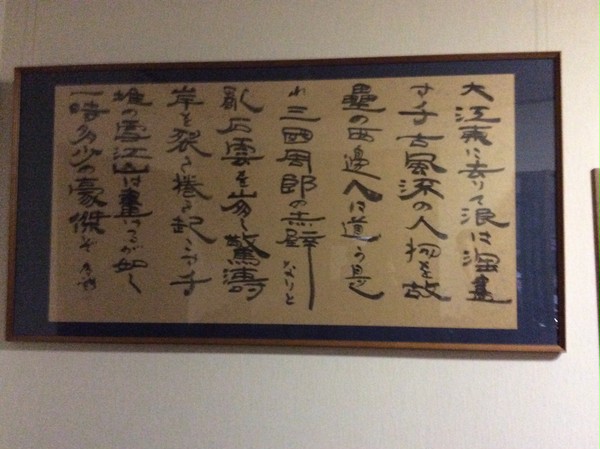 大江東に去りて浪は淘盡
す千古風流の人物を故
壘の西邊人は道う是
れ三國周郎の赤壁なりと
亂石雲を崩し驚濤
岸を裂き捲き起こす千
堆の雪江山は畫けるが如し
一時多少の豪傑ぞ